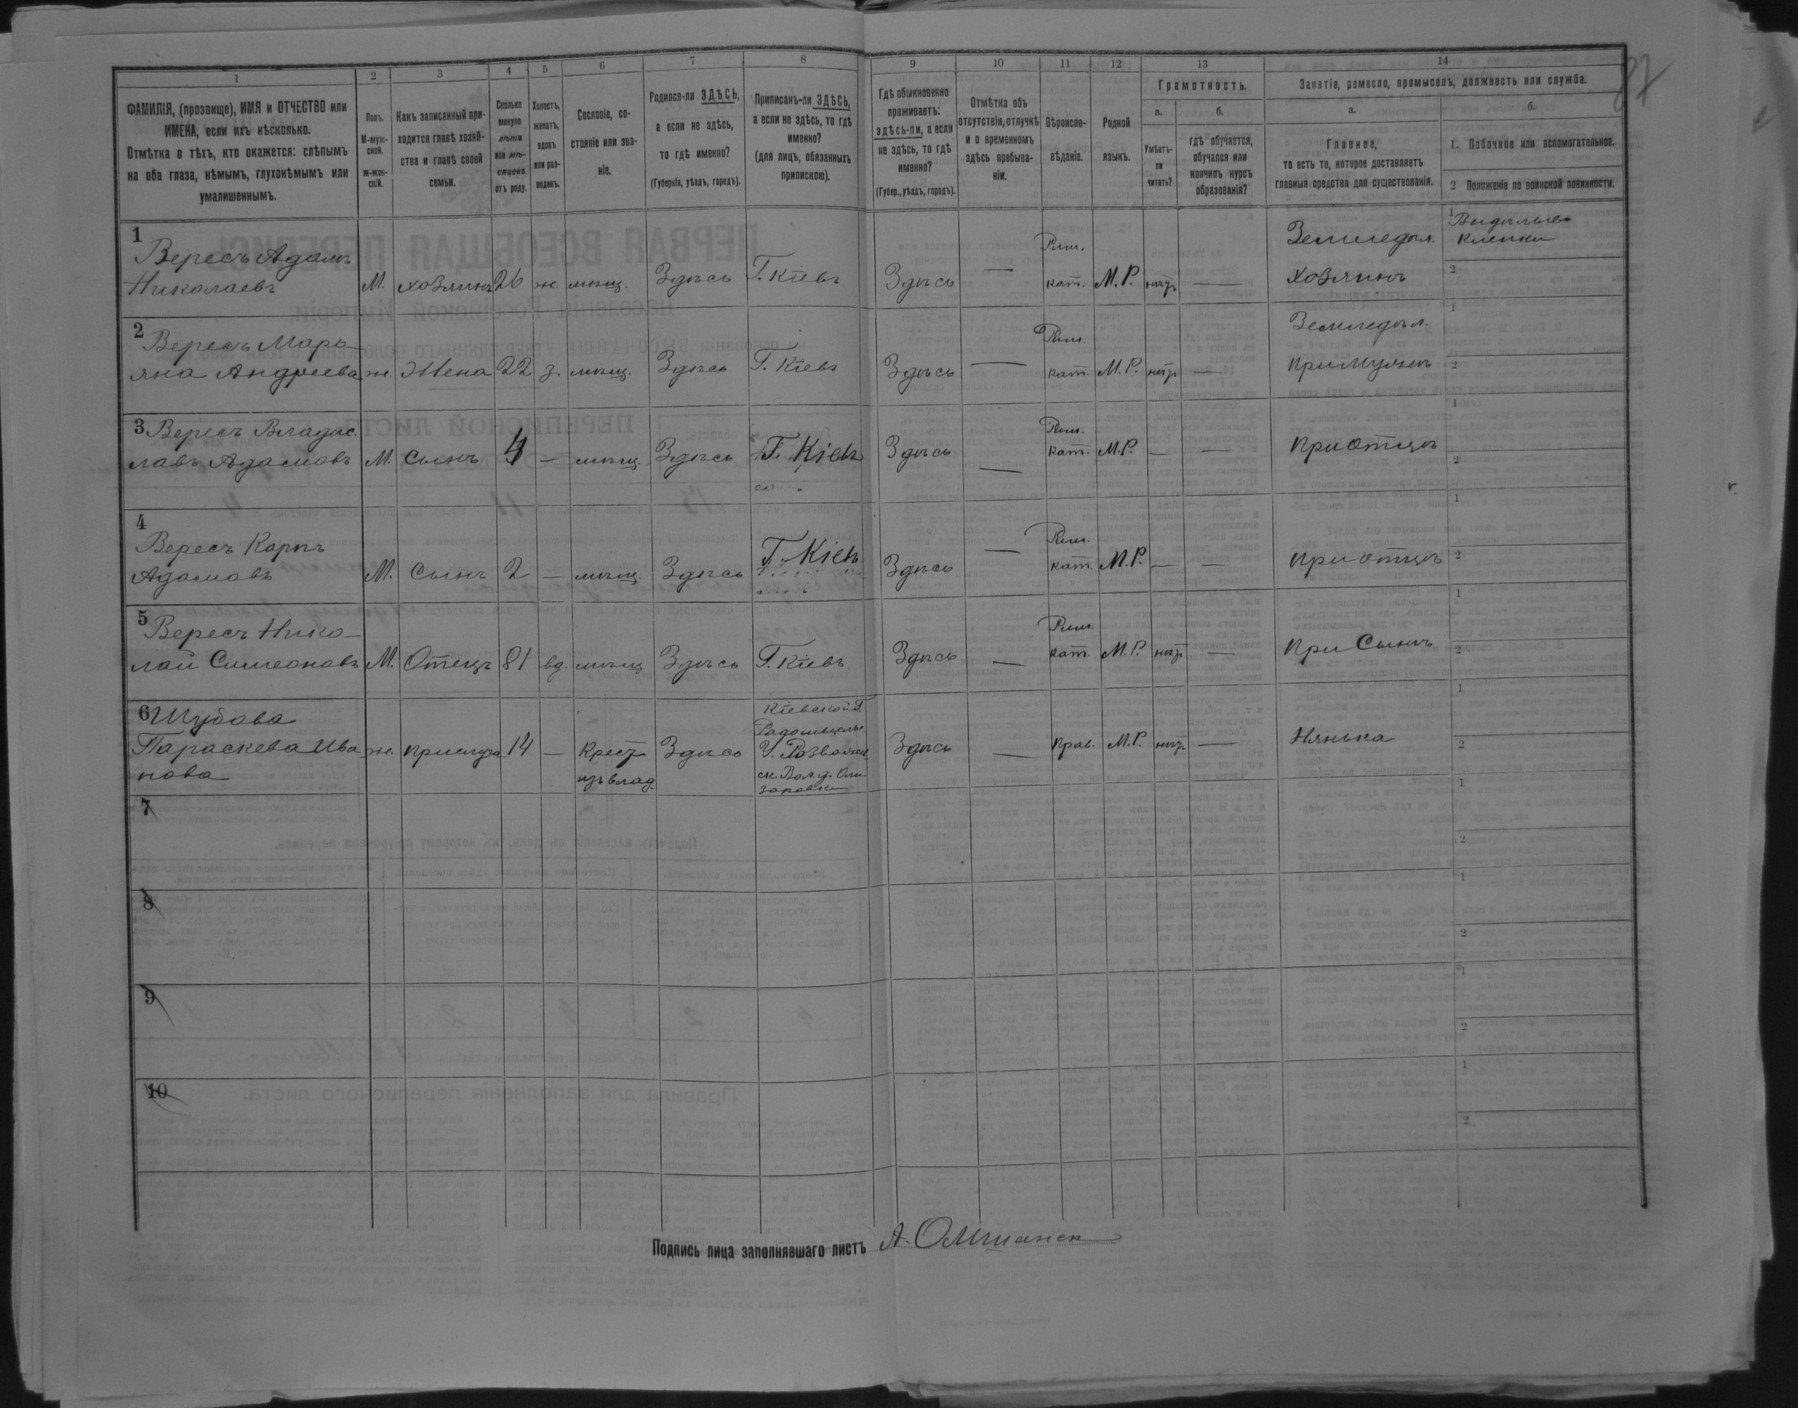 1 2 3 4 5 6 7 8 9 10 11 12 13 14
ФАМИЛІЯ, (прозвище), ИМЯ и ОТЧЕСТВО или
ИМЕНА, если ихъ нѣсколько.
Отмѣтка о тѣхъ, кто окажется: слѣпымъ
на оба глаза, нѣмымъ, глухонѣмымъ или
умалишеннымъ.
Полъ.
М-муж-
ской.
ж-жен-
скій.
Какъ записанный при-
ходится главѣ хозяй-
ства и главѣ своей
семьи.
Сколько
минуло
лѣтъ
или мѣ-
сяцевъ
отъ роду.
Холостъ,
женатъ,
вдовъ
или раз-
веденъ.
Сословіе, со-
стояніе или зва-
ніе.
Родился-ли ЗДѢСЬ,
а если не здѣсь,
то гдѣ именно?
(Губернія, уѣздъ, городъ).
Приписанъ-ли ЗДѢСЬ,
а если не здѣсь, то гдѣ
именно?
(для лицъ, обязанныхъ
припискою).
Гдѣ обыкновенно
проживаетъ:
здѣсь-ли, а если
не здѣсь, то гдѣ
именно?
(Губер., уѣздъ, городъ).
Отмѣтка объ
отсутствіи, отлучкѣ
и о временномъ
здѣсь пребыва-
ніи.
Вѣроиспо-
вѣданіе.
Родной
языкъ.
Грамотность.
а.
Умѣетъ-
ли
читать?
б.
гдѣ обучается,
обучался или
кончилъ курсъ
образованія?
Занятіе, ремесло, промыселъ, должность или служба.
а.
Главное,
то есть то, которое доставляетъ
главныя средства для существованія.
б.
1. Побочное или вспомогательное.
2 Положеніе по воинской повинности.
1
Вересъ Адамъ
Николаевъ М. хозяинъ 26 ж. мѣщ. Здѣсь Г. Кіевъ Здѣсь — Рим. кат. М.Р. нѣтъ — Земледѣл. хозяинъ
1
клепки
2
2
Вересъ Марь-
яна Андреева ж. Жена 22 з. мѣщ. Здѣсь Г. Кіевъ Здѣсь — Рим. кат. М.Р. нѣтъ — Земледѣл. при мужѣ
1
2
3 Вересъ Владис-
лавъ Адамовъ М. сынъ 4 — мѣщ. Здѣсь Г. Кіевъ Здѣсь — Рим. кат. М.Р. — — при отцѣ
1
2
4
Вересъ Карпъ
Адамовъ М. сынъ 2 — мѣщ. Здѣсь Г. Кіевъ Здѣсь — Рим. кат. М.Р. — — при отцѣ
1
2
5
Вересъ Нико-
лай Симеоновъ М. Отецъ 81 вд. мѣщ. Здѣсь Г. Кіевъ Здѣсь — Рим. кат. М.Р. нѣтъ — при Сынѣ
1
2
6 Шубова
Параскева Ива
нова ж. прислуга 14 — Крест. изъ влад. Здѣсь
Кіевской Г.
Радомысль.
У.
Здѣсь — прав. М.Р. нѣтъ — Нянька
1
2
7
1
2
8
1
2
9
1
2
10
1
2
Подпись лица заполнявшаго листъ